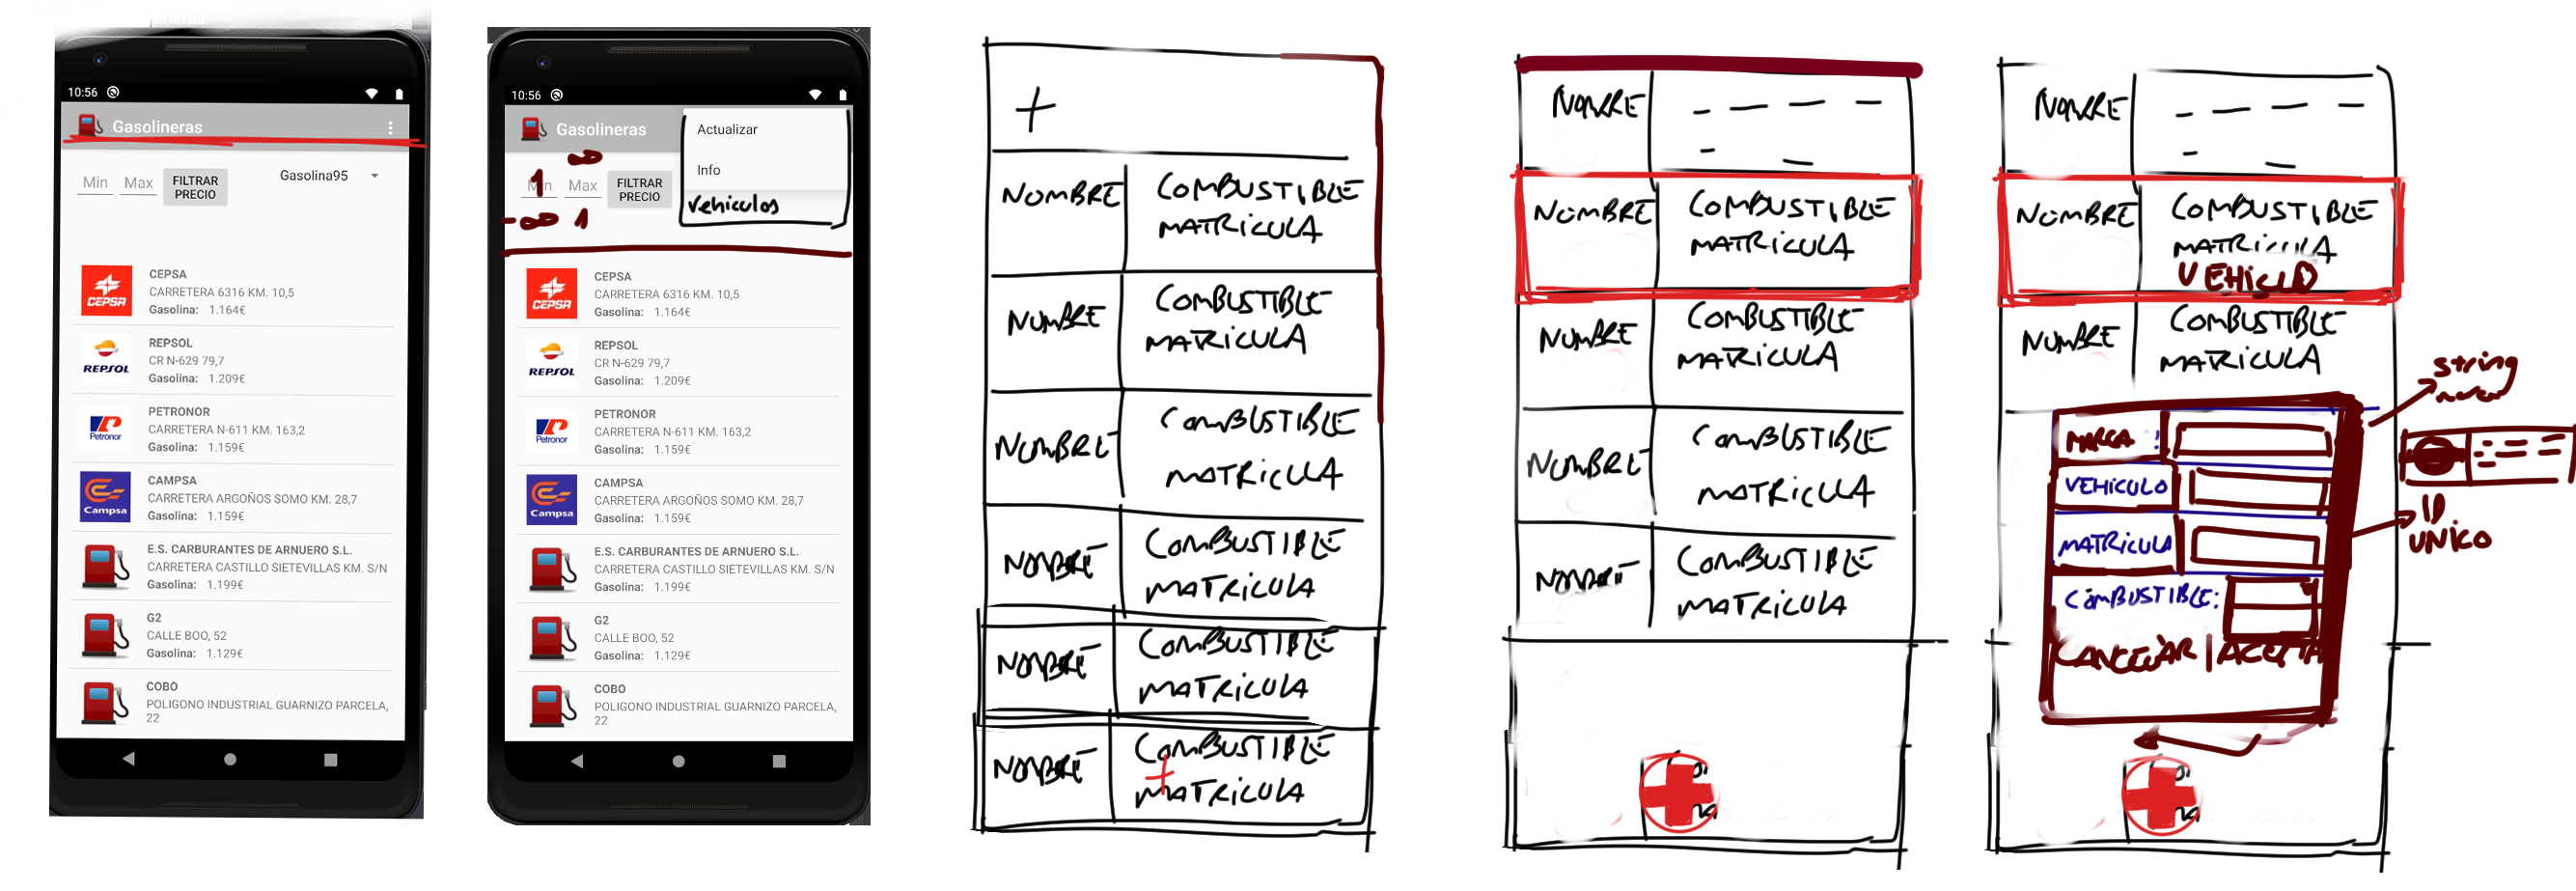 10:56
Gasolineras
Min Max FILTRAR PRECIO Gasolina95
CEPSA
CEPSA
CARRETERA 6316 KM. 10,5
Gasolina: 1.164€
REPSOL
REPSOL
CR N-629 79,7
Gasolina: 1.209€
Petronor
PETRONOR
CARRETERA N-611 KM. 163,2
Gasolina: 1.159€
Campsa
CAMPSA
CARRETERA ARGOÑOS SOMO KM. 28,7
Gasolina: 1.159€
E.S. CARBURANTES DE ARNUERO S.L.
CARRETERA CASTILLO SIETEVILLAS KM. S/N
Gasolina: 1.199€
G2
CALLE BOO, 52
Gasolina: 1.129€
COBO
POLIGONO INDUSTRIAL GUARNIZO PARCELA,
22
10:56
Gasolineras
Actualizar
Info
Vehiculos
∞
1
Min Max FILTRAR PRECIO
-∞ 1
CEPSA
CEPSA
CARRETERA 6316 KM. 10,5
Gasolina: 1.164€
REPSOL
REPSOL
CR N-629 79,7
Gasolina: 1.209€
Petronor
PETRONOR
CARRETERA N-611 KM. 163,2
Gasolina: 1.159€
Campsa
CAMPSA
CARRETERA ARGOÑOS SOMO KM. 28,7
Gasolina: 1.159€
E.S. CARBURANTES DE ARNUERO S.L.
CARRETERA CASTILLO SIETEVILLAS KM. S/N
Gasolina: 1.199€
G2
CALLE BOO, 52
Gasolina: 1.129€
COBO
POLIGONO INDUSTRIAL GUARNIZO PARCELA,
22
+
NOMBRE COMBUSTIBLE
MATRICULA
NOMBRE COMBUSTIBLE
MATRICULA
NOMBRE COMBUSTIBLE
MATRICULA
NOMBRE COMBUSTIBLE
MATRICULA
NOMBRE COMBUSTIBLE
MATRICULA
NOMBRE COMBUSTIBLE
MATRICULA
NOMBRE
NOMBRE COMBUSTIBLE
MATRICULA
NOMBRE COMBUSTIBLE
MATRICULA
NOMBRE COMBUSTIBLE
MATRICULA
NOMBRE COMBUSTIBLE
MATRICULA
NOMBRE
NOMBRE COMBUSTIBLE
MATRICULA
VEHICLO
NOMBRE COMBUSTIBLE
MATRICULA
string
MARCA :
VEHICULO
MATRICULA
COMBUSTIBLE:
CANCELAR | ACEPTA
ID
UNICO